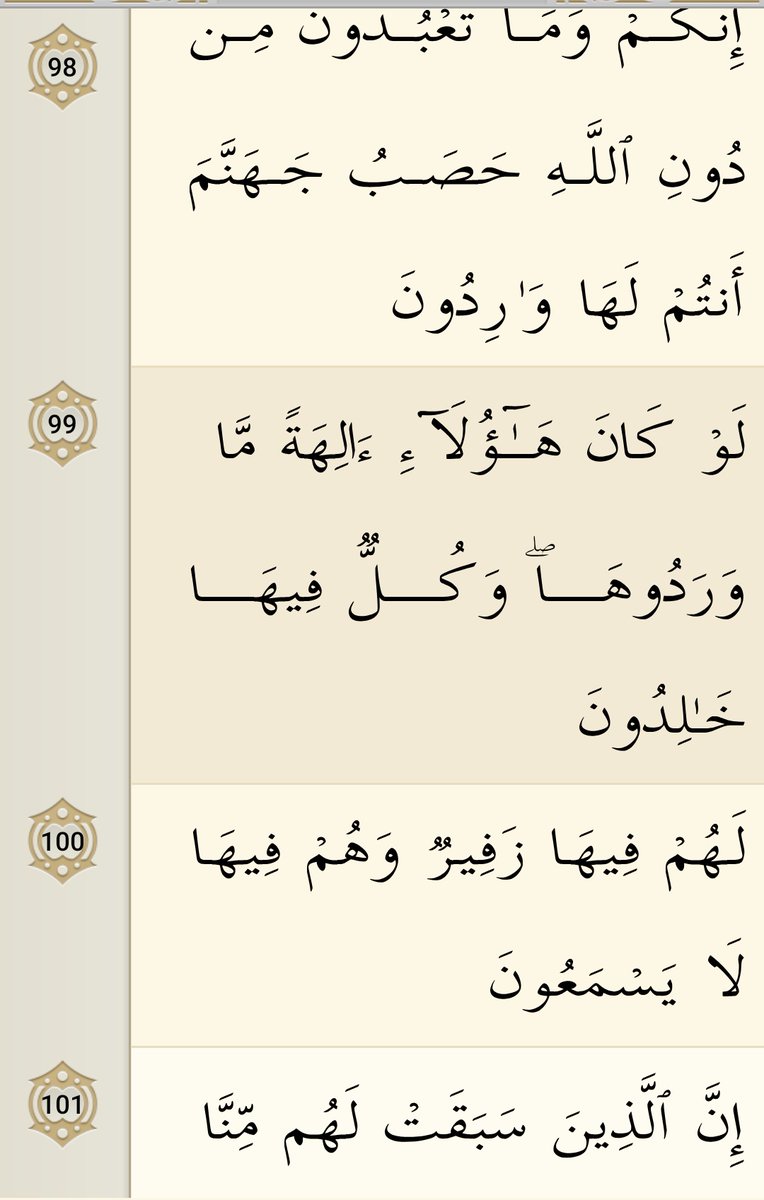 98
إِنَّكُمْ وَمَا تَعْبُدُونَ مِن
دُونِ ٱللَّـهِ حَصَبُ جَهَنَّمَ
أَنتُمْ لَهَا وَٰرِدُونَ
99
لَوْ كَانَ هَـٰٓؤُلَآءِ ءَالِهَةً مَّا
وَرَدُوهَا ۖ وَكُلٌّ فِيهَا
خَـٰلِدُونَ
100
لَهُمْ فِيهَا زَفِيرٌ وَهُمْ فِيهَا
لَا يَسْمَعُونَ
101
إِنَّ ٱلَّذِينَ سَبَقَتْ لَهُم مِّنَّا